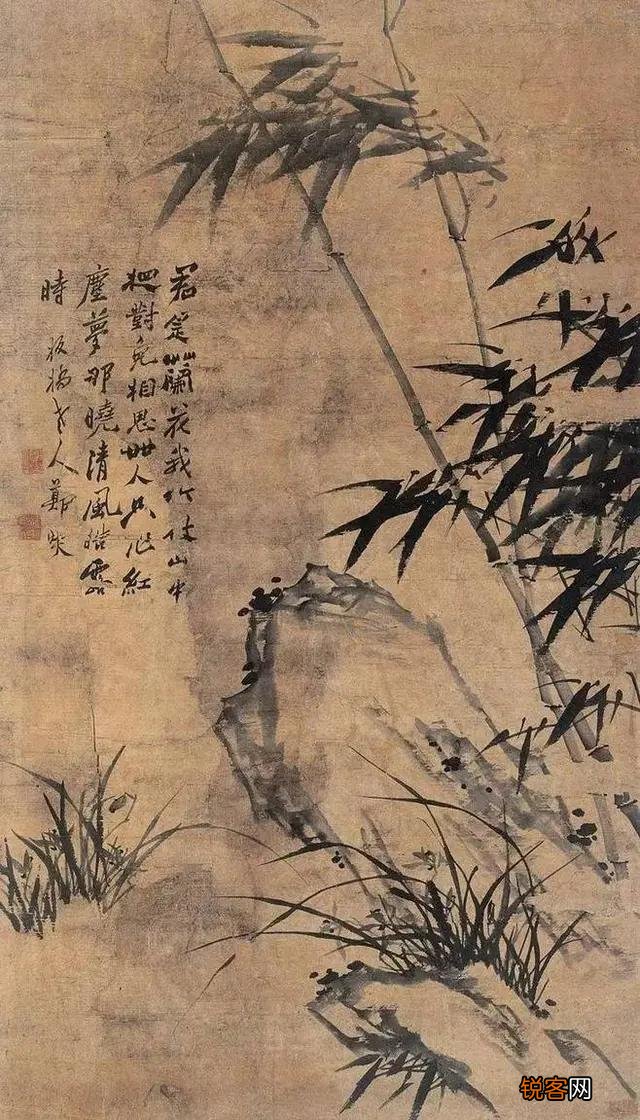 君是蘭花我竹枝山中
相對免相思世人只作紅
塵夢那曉清風皓露
時 板橋老人鄭燮
锐客网